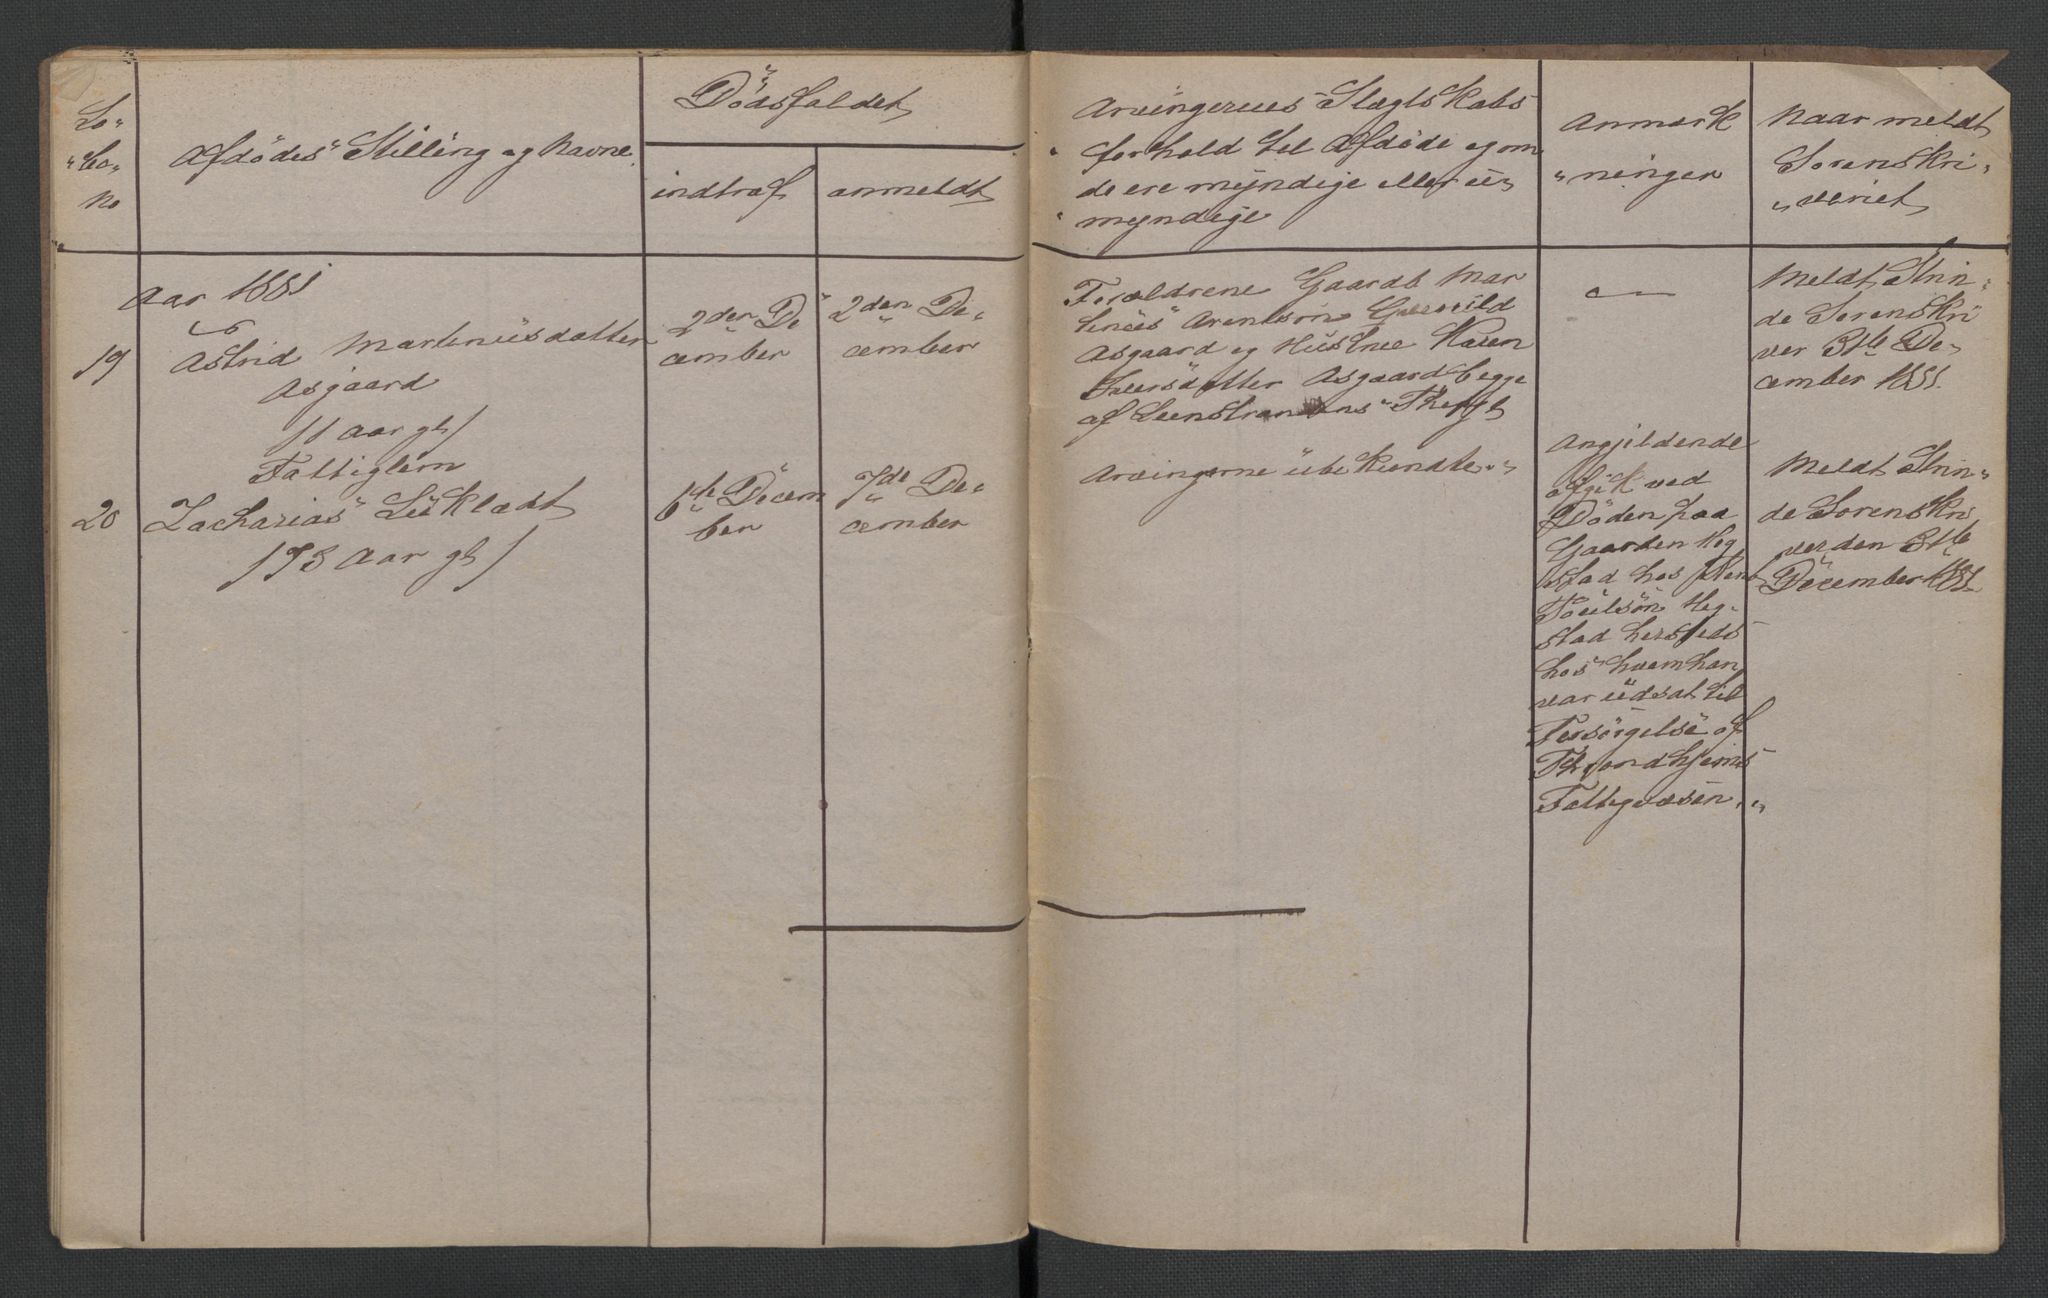 Lö-
"be-
No
Afdödes" Stilling og Navne.
Dödsfaldet
indtraf
anmeldt
Arvingernes Slægtskabs
forhold til Afdöde og om
de ere myndige eller u-
myndige
Anmærk
"ninger
Naar meldt
Sorenskri-
"veriet
Aar 1881
19
Astrid Martinusdatter
Asgaard
/1 Aar gl/
2den De
cember
2den De-
cember
Forældrene Gaardb Mar
tinus" Arentsön
Asgaard og Hustrue Karen
Iversdatter Asgaard begge
af Leenstrandens Thingl
Meldt Strin-
de Sorenskri
ver 31te De-
cember 1881.
20
Fattiglem
Zacharias"
/73 Aar gl/
6te Decem
ber
7de De-
cember
Arvingerne übekundte."
Angjeldende
afgik ved
Döden paa
Gaarden Heg
stad hos
Poulsön Heg-
stad hersteds
hos" hvem han
var udsat til
Forsörgelse af
Throndhjems
Fattigvæsen."
Meldt Strin-
de Sorenskri
ver den 31te
December 1881